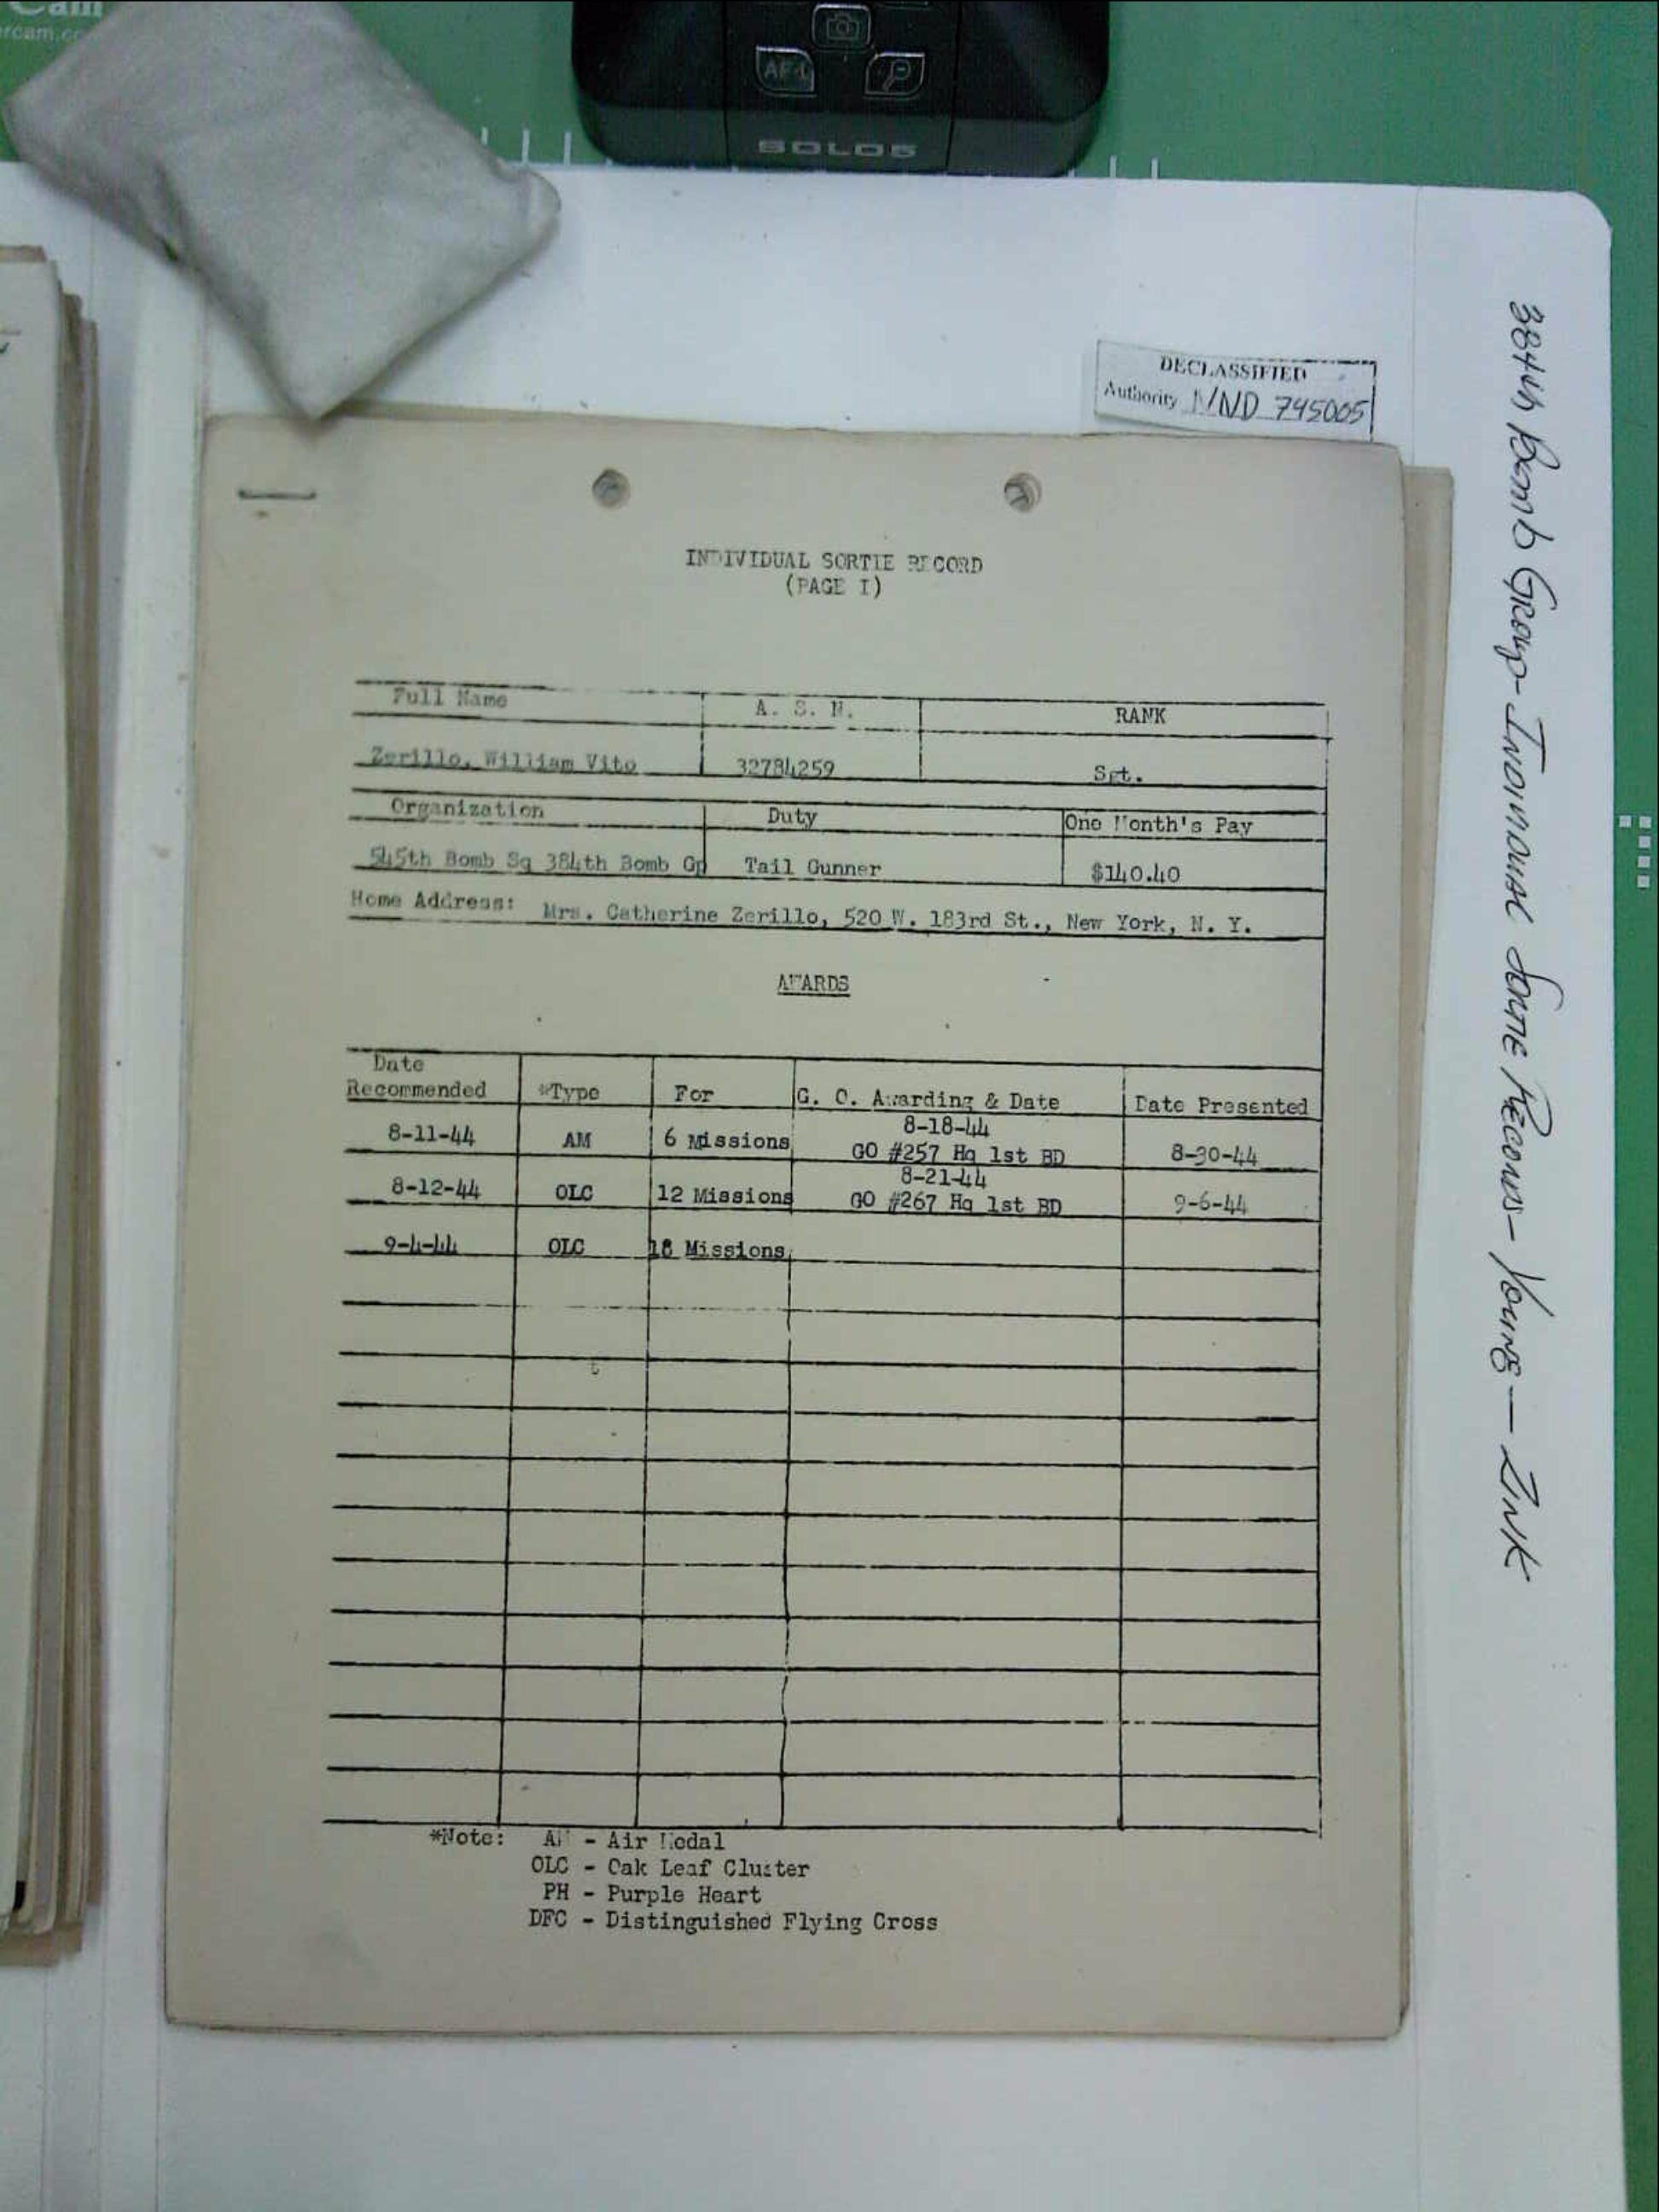 AF
SOLO5
DECLASSIFIED
Authority NND 745005
384th Bomb Group - Individual Sortie Records - Young - Zink
INDIVIDUAL SORTIE RECORD
(PAGE I)
Full Name A. S. N. RANK
Zerillo, William Vito 32784259 Sgt.
Organization Duty One Month's Pay
545th Bomb Sq 384th Bomb Gp Tail Gunner $140.40
Home Address: Mrs. Catherine Zerillo, 520 W. 183rd St., New York, N. Y.
AWARDS
Date
Recommended *Type For G. O. Awarding & Date Date Presented
8-18-44
8-11-44 AM 6 Missions GO #257 Hq 1st BD 8-30-44
8-21-44
8-12-44 OLC 12 Missions GO #267 Hq 1st BD 9-6-44
9-4-44 OLC 18 Missions
*Note: AM - Air Medal
OLC - Oak Leaf Cluster
PH - Purple Heart
DFC - Distinguished Flying Cross